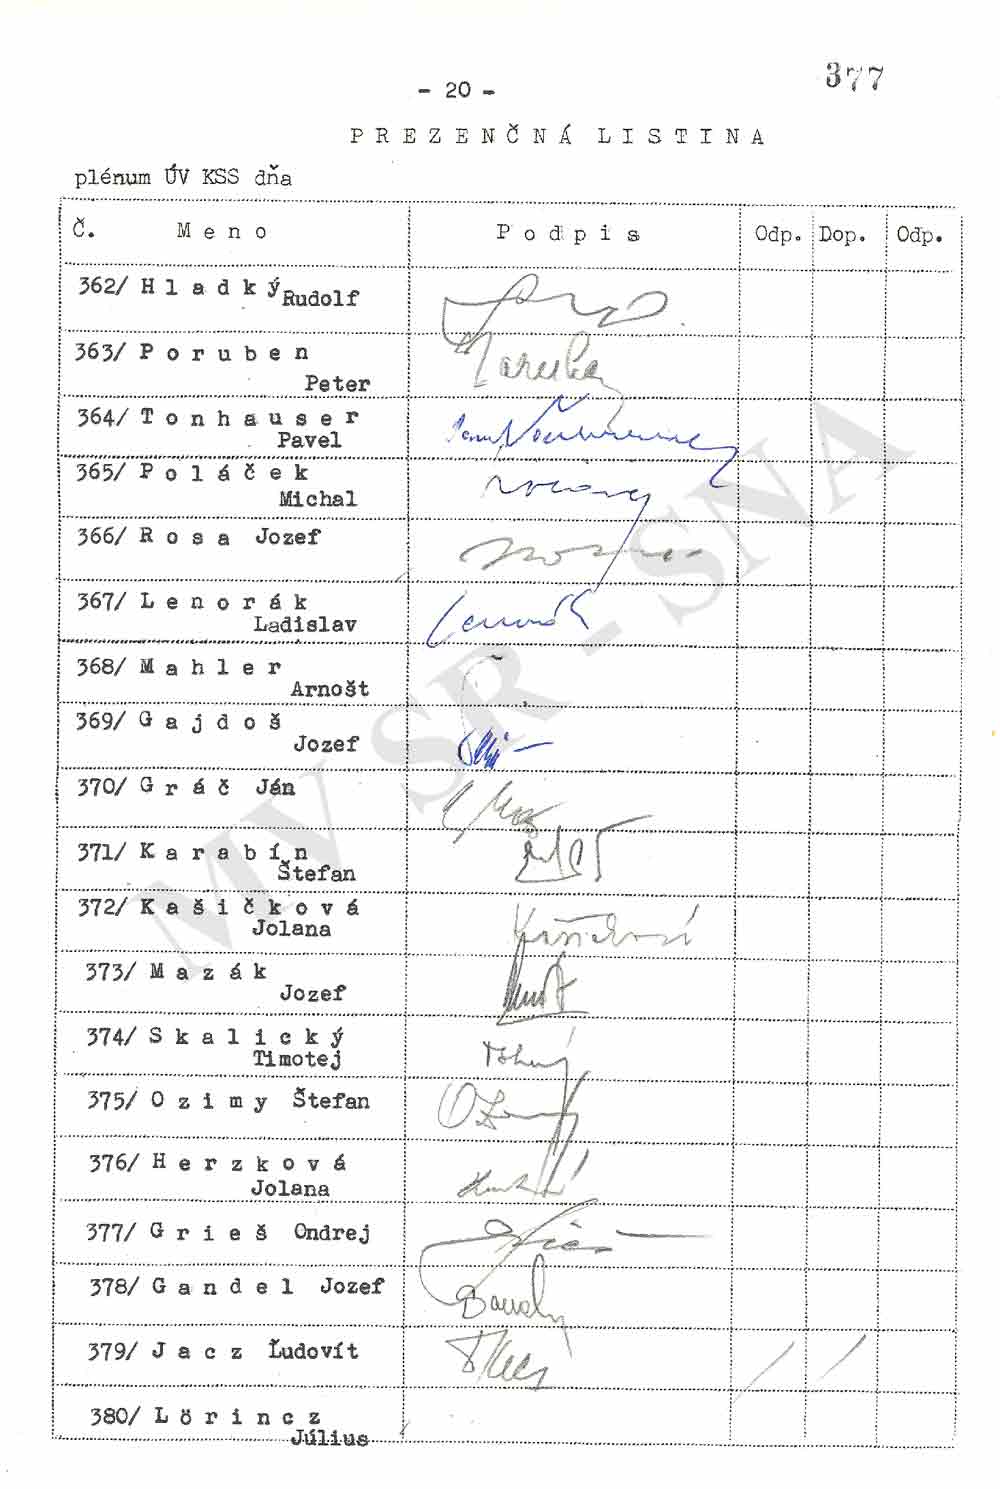 377
- 20 -
P R E Z E N Č N Á L I S T I N A
plénum ÚV KSS dňa
Č. M e n o P o d p i s Odp. Dop. Odp.
362/ H l a d k ý Rudolf
363/ P o r u b e n
Peter
364/ T o n h a u s e r
Pavel
365/ P o l á č e k
Michal
366/ R o s a Jozef
367/ L e n o r á k
Ladislav
368/ M a h l e r
Arnošt
369/ G a j d o š
Jozef
370/ G r á č Ján
371/ K a r a b í n
Štefan
372/ K a š i č k o v á
Jolana
373/ M a z á k
Jozef
374/ S k a l i c k ý
Timotej
375/ O z i m y Štefan
376/ H e r z k o v á
Jolana
377/ G r i e š Ondrej
378/ G a n d e l Jozef
379/ J a c z Ľudovít
380/ L ö r i n c z
Július
MV SR - SNA